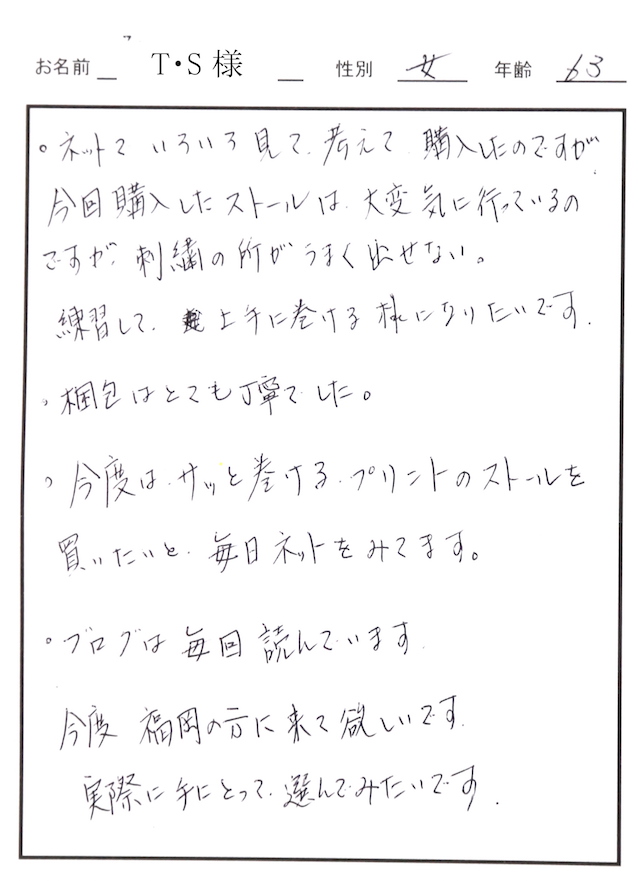 お名前 T・S 様 性別 女 年齢 63
。ネットで いろいろ見て、考えて 購入したのですが、
今回購入したストールは、大変気に行っているの
ですが、刺繍の所がうまく出せない。
練習して、上手に巻ける様になりたいです。
、梱包はとても丁寧でした。
、今度は、サッと巻ける、プリントのストールを
買いたいと、毎日ネットをみてます。
。ブログは毎回読んでいます。
今度 福岡の方に来て欲しいです。
実際に手にとって、選んでみたいです。